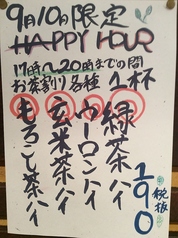 9月10月限定
HAPPY HOUR
17時〜20時までの間
お茶割り各種 1杯
緑茶ハイ
ウーロンハイ
玄米茶ハイ
もろこし茶ハイ
190
税抜